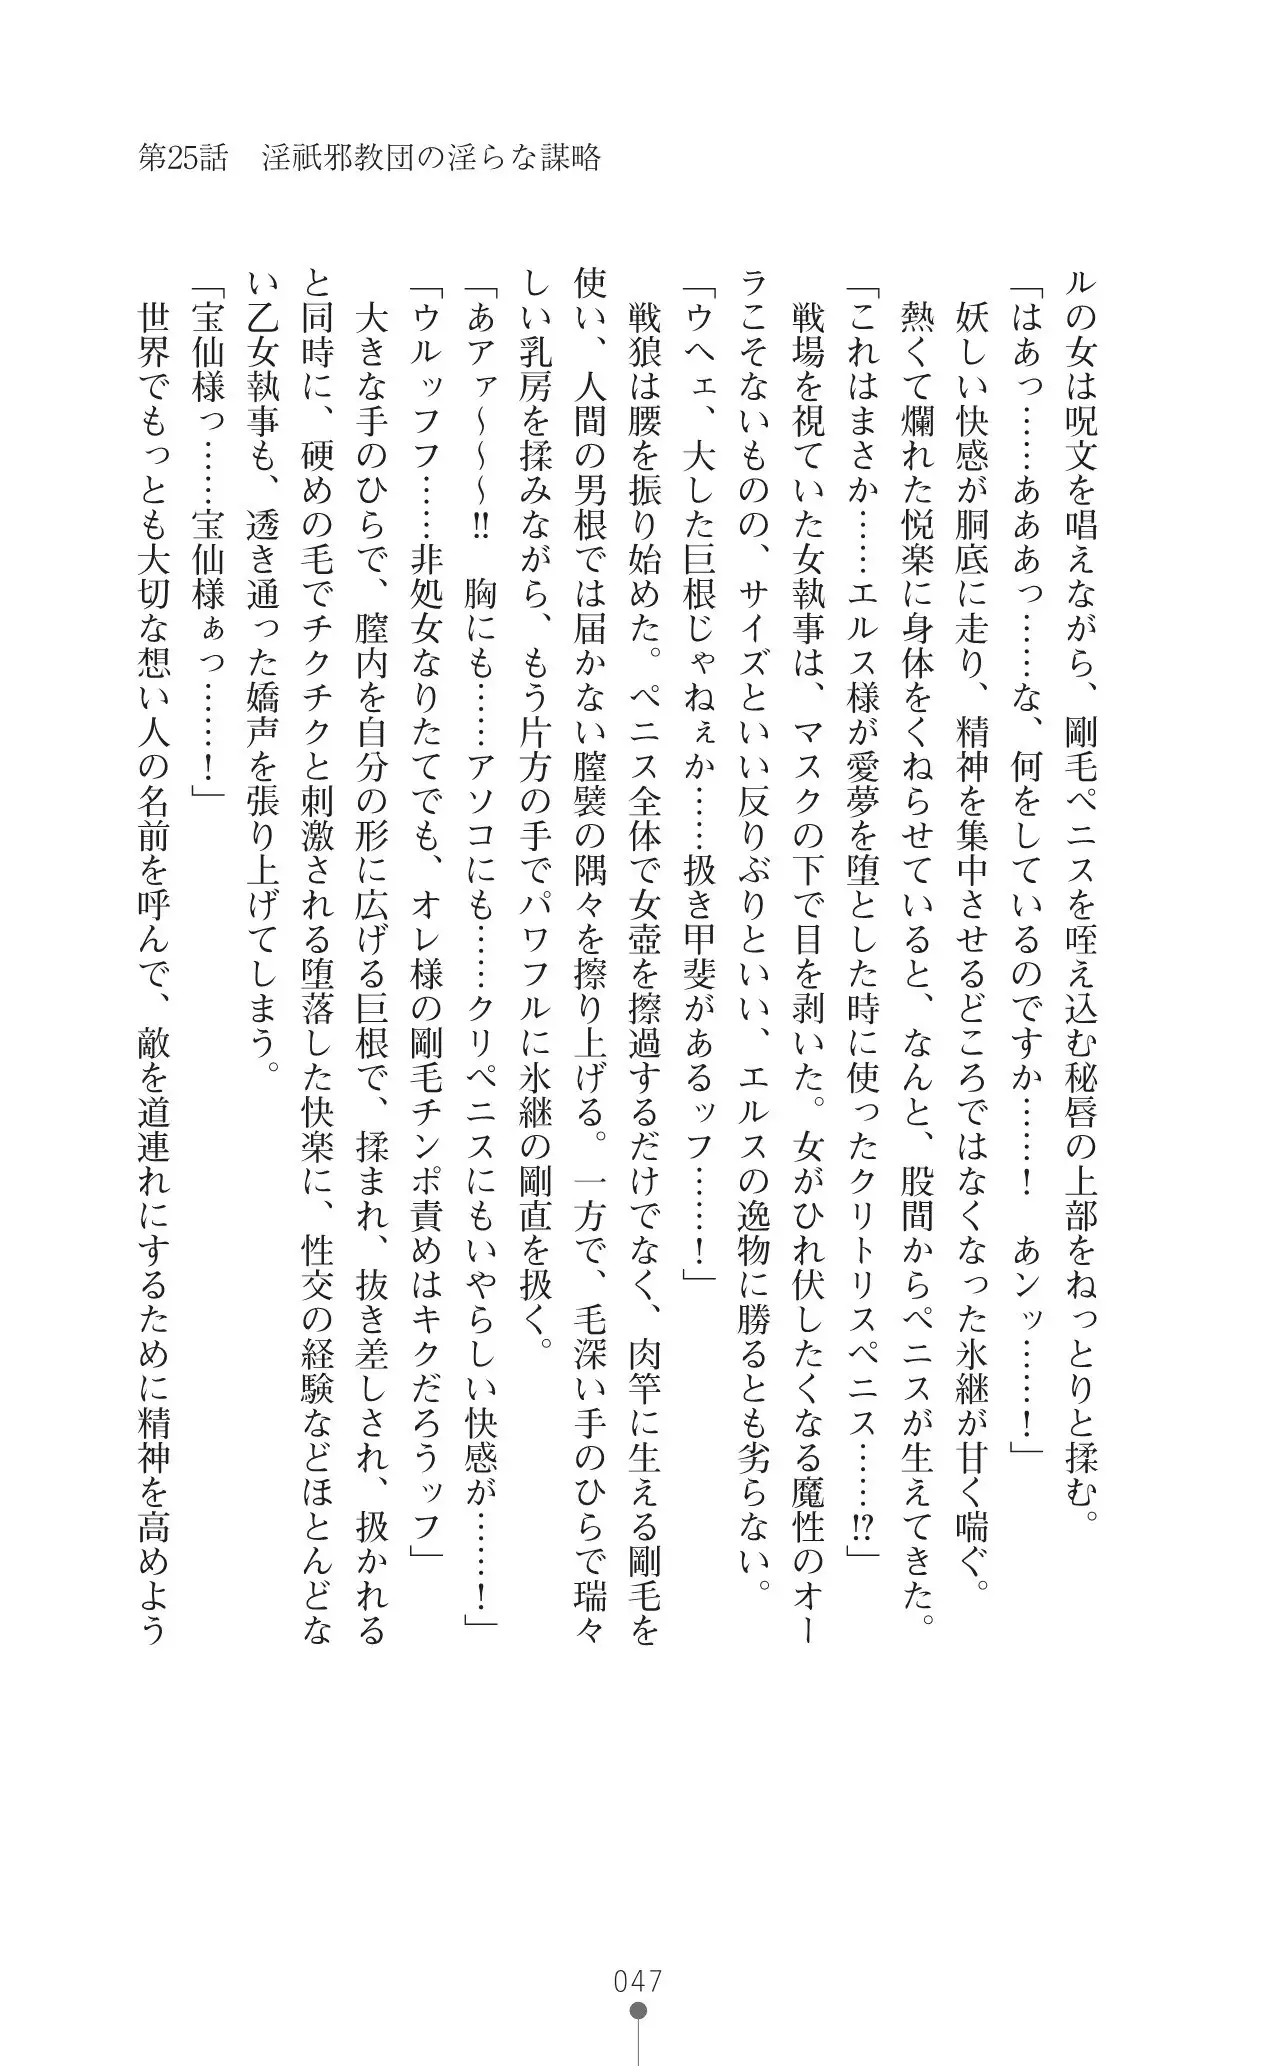 第25話　淫祇邪教団の淫らな謀略
ルの女は呪文を唱えながら、剛毛ペニスを咥え込む秘唇の上部をねっとりと揉む。
「はあっ……あああっ……な、何をしているのですか……！　あンッ……！」
　妖しい快感が胴底に走り、精神を集中させるどころではなくなった氷継が甘く喘ぐ。
　熱くて爛れた悦楽に身体をくねらせていると、なんと、股間からペニスが生えてきた。
「これはまさか……エルス様が愛夢を堕とした時に使ったクリトリスペニス……⁉」
　戦場を視ていた女執事は、マスクの下で目を剥いた。女がひれ伏したくなる魔性のオー
ラこそないものの、サイズといい反りぶりといい、エルスの逸物に勝るとも劣らない。
「ウヘェ、大した巨根じゃねぇか……扱き甲斐があるッフ……！」
　戦狼は腰を振り始めた。ペニス全体で女壺を擦過するだけでなく、肉竿に生える剛毛を
使い、人間の男根では届かない膣襞の隅々を擦り上げる。一方で、毛深い手のひらで瑞々
しい乳房を揉みながら、もう片方の手でパワフルに氷継の剛直を扱く。
「あアァ〜〜〜‼　胸にも……アソコにも……クリペニスにもいやらしい快感が……！」
「ウルッフフ……非処女なりたてでも、オレ様の剛毛チンポ責めはキクだろうッフ」
　大きな手のひらで、膣内を自分の形に広げる巨根で、揉まれ、抜き差しされ、扱かれる
と同時に、硬めの毛でチクチクと刺激される堕落した快楽に、性交の経験などほとんどな
い乙女執事も、透き通った嬌声を張り上げてしまう。
「宝仙様っ……宝仙様ぁっ……！」
　世界でもっとも大切な想い人の名前を呼んで、敵を道連れにするために精神を高めよう
047